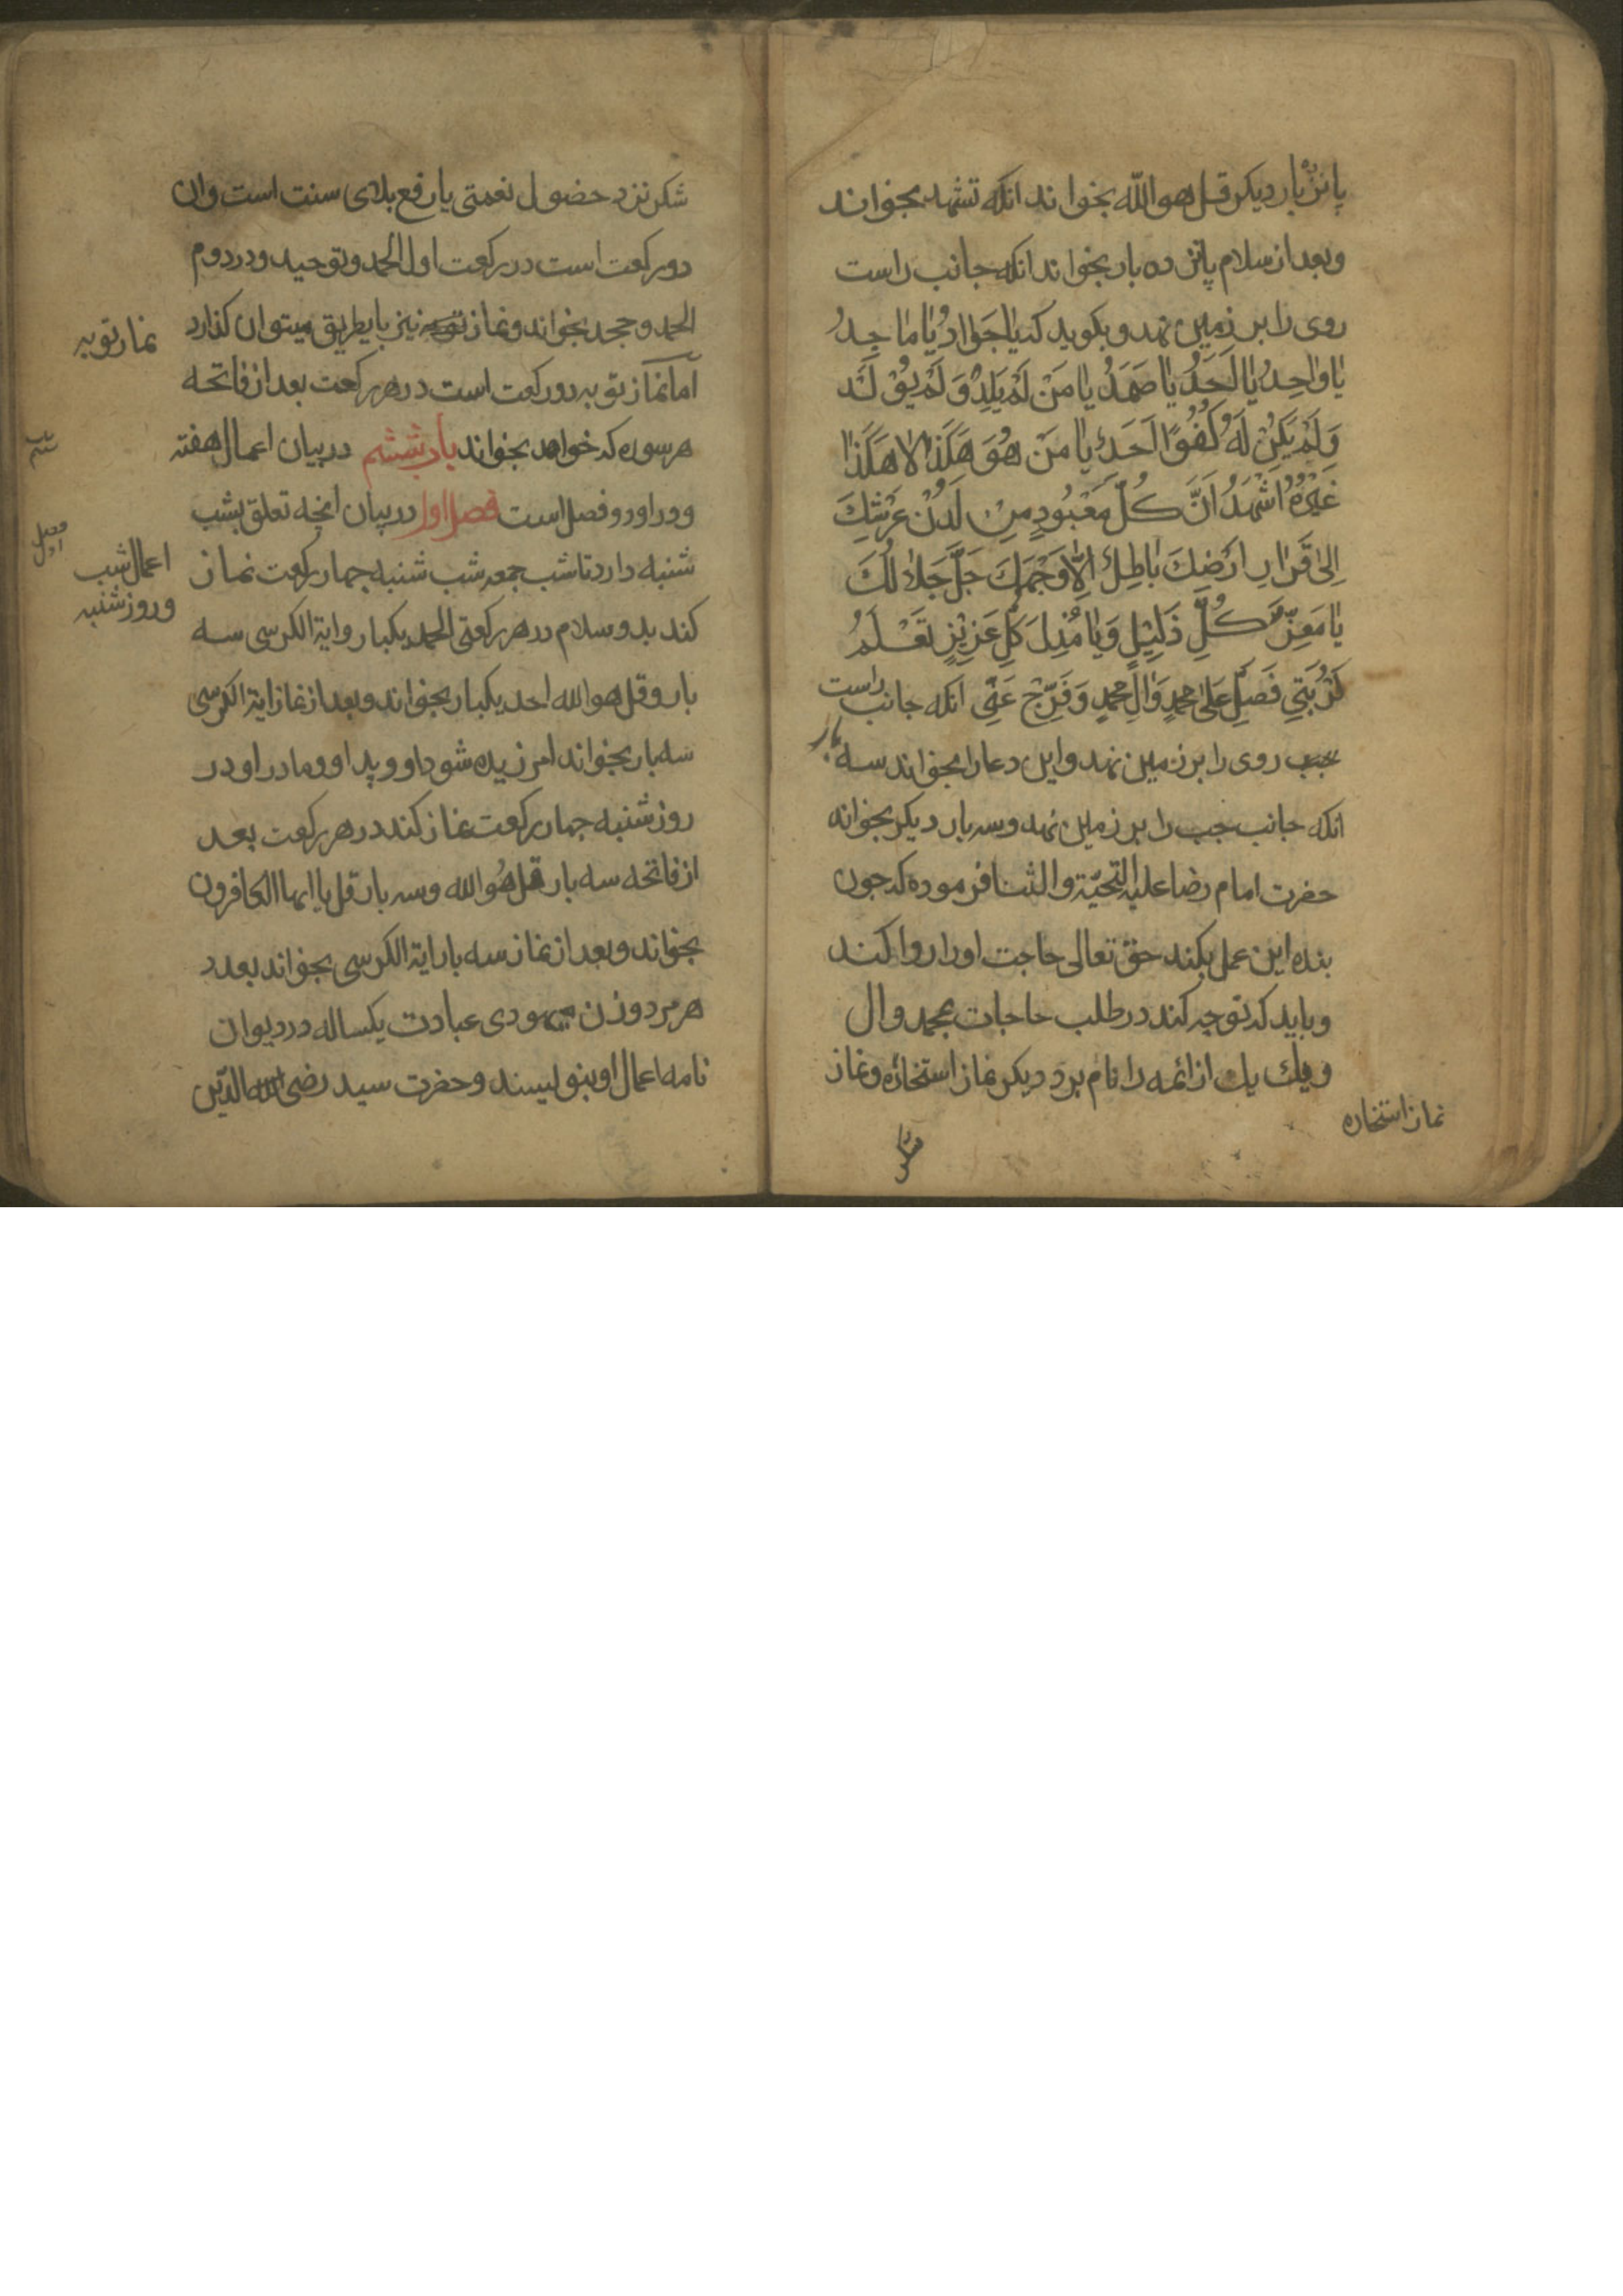 پانزده بار دیکر قل هو الله بخواند انکه تشهد بخواند
و بعد از سلام پانزده بار بخواند انکه جانب راست
روی را بر زمین نهد و بکوید که یا جَوادُ یا ماجِدُ
یا واحِدُ یا اَحَدُ یا صَمَدُ یا مَنْ لَمْ یَلِدْ وَ لَمْ یُوْلَدْ
وَ لَمْ یَکُنْ لَهُ کُفُوًا اَحَدٌ یا مَنْ هُوَ هَکَذا لا هَکَذا
غَیْرُهُ اَشْهَدُ اَنَّ کُلَّ مَعْبُودٍ مِنْ لَدُنْ عَرْشِكَ
اِلیٰ قَرارِ اَرْضِكَ باطِلٌ اِلّا وَجْهَكَ جَلَّ جَلالُكَ
یا مُعِزَّ کُلِّ ذَلِیْلٍ وَ یا مُذِلَّ کُلِّ عَزِیْزٍ تَعْلَمُ
کُرْبَتِی فَصَلِّ عَلیٰ محمدٍ وَ الِ محمدٍ وَ فَرِّجْ عَنّی انکه جانب راست
چپ روی را بر زمین نهد و این دعا را بخواند سه بار
انکه جانب چپ را بر زمین نهد و سه بار دیکر بخواند
حضرت امام رضا علیه التحیّة و الثنا فرموده که چون
بنده این عمل بکند حق تعالی حاجت او را روا کند
و باید که توجه کند در طلب حاجات بمحمد و ال
و یك یك از ائمه را نام برد دیکر نماز استخاره و نماز
نماز استخاره
شکر
شکر نزد حضول نعمتی یا رفع بلای سنت است و ان
دو رکعت است در رکعت اول الحمد و توحید و در دوم
الحمد و جحد بخواند و نماز توبه نیز باین طریق میتوان کذارد
نماز توبه
اما نماز توبه دو رکعت است در هر رکعت بعد از فاتحه
هر سوره که خواهد بخواند باب ششم در بیان اعمال هفته
باب ششم
و در او دو فصل است فصل اول در بیان انچه تعلق بشب
فصل اول
شنبه دارد تا شب جمعه شب شنبه چهار رکعت نماز
اعمال شب
و روز شنبه
کند بدو سلام در هر رکعتی الحمد یکبار و ایة الکرسی سه
بار و قل هو الله احد یکبار بخواند و بعد از نماز ایة الکرسی
سه بار بخواند امرزیده شود او و پدر او و مادر او و در
روز شنبه چهار رکعت نماز کند در هر رکعت بعد
از فاتحه سه بار قل هُو الله و سه بار قل یا ایها الکافرون
بخواند و بعد از نماز سه بار ایة الکرسی بخواند بعدد
هر مرد و زن یهودی عبادت یکساله در دیوان
نامه اعمال او بنویسند و حضرت سید رضی الدّین